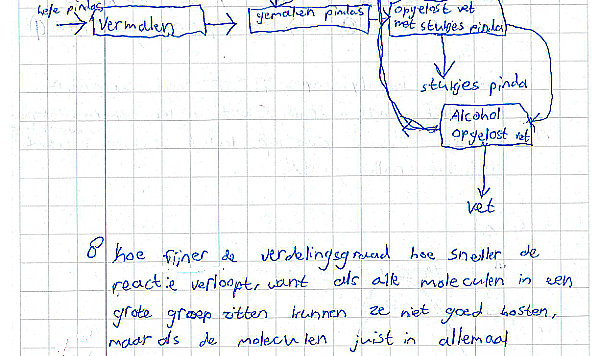 hele pindas
vermalen
gemalen pindas
opgelost vet
met stukjes pinda
stukjes pinda
Alcohol
opgelost vet
vet
8 hoe fijner de verdelingsgraad hoe sneller de
reactie verloopt, want als alle moleculen in een
grote groep zitten kunnen ze niet goed bosten,
maar als de moleculen juist in allemaal